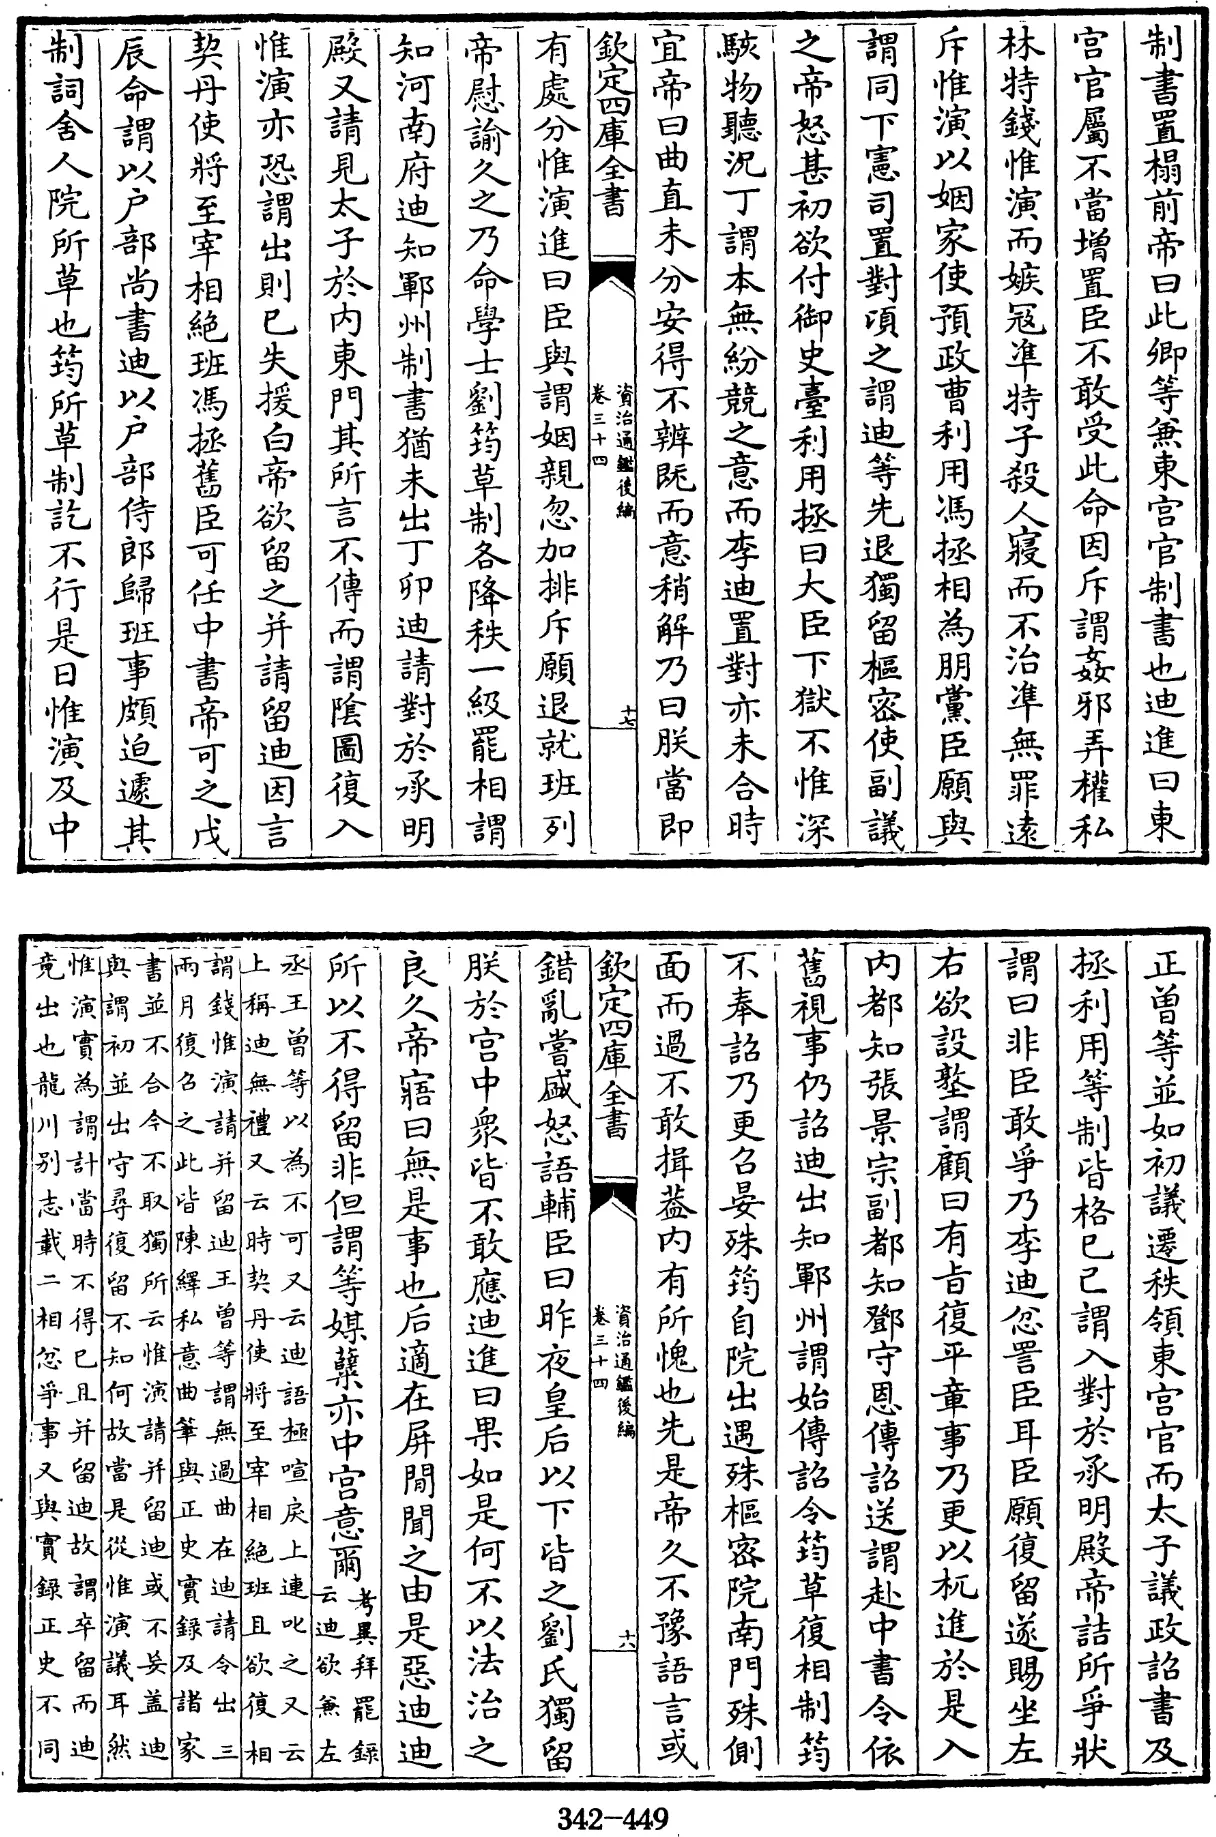 制書置榻前帝曰此卿等兼東宫官制書也迪進曰東
宫官屬不當增置臣不敢受此命因斥謂姦邪弄權私
林特錢惟演而嫉冦準特子殺人寢而不治準無罪逺
斥惟演以姻家使預政曹利用馮拯相為朋黨臣願與
謂同下憲司置對頃之謂迪等先退獨留樞密使副議
之帝怒甚初欲付御史臺利用拯曰大臣下獄不惟深
駭物聽況丁謂本無紛競之意而李迪置對亦未合時
宜帝曰曲直未分安得不辨既而意稍解乃曰朕當即
欽定四庫全書
資治通鑑後編
卷三十四
十七
有處分惟演進曰臣與謂姻親忽加排斥願退就班列
帝慰諭久之乃命學士劉筠草制各降秩一級罷相謂
知河南府迪知鄆州制書猶未出丁卯迪請對於承明
殿又請見太子於内東門其所言不傳而謂陰圖復入
惟演亦恐謂出則已失援白帝欲留之并請留迪因言
契丹使將至宰相絶班馮拯舊臣可任中書帝可之戊
辰命謂以户部尚書迪以户部侍郎歸班事頗迫遽其
制詞舍人院所草也筠所草制訖不行是日惟演及中
正曾等並如初議遷秩領東宫官而太子議政詔書及
拯利用等制皆格己巳謂入對於承明殿帝詰所爭狀
謂曰非臣敢爭乃李迪忿詈臣耳臣願復留遂賜坐左
右欲設墪謂顧曰有㫖復平章事乃更以杌進於是入
内都知張景宗副都知鄧守恩傳詔送謂赴中書令依
舊視事仍詔迪出知鄆州謂始傳詔令筠草復相制筠
不奉詔乃更召晏殊筠自院出遇殊樞密院南門殊側
面而過不敢揖葢内有所愧也先是帝久不豫語言或
欽定四庫全書
資治通鑑後編
卷三十四
十八
錯亂嘗盛怒語輔臣曰昨夜皇后以下皆之劉氏獨留
朕於宫中衆皆不敢應迪進曰果如是何不以法治之
良久帝寤曰無是事也后適在屏間聞之由是惡迪迪
所以不得留非但謂等媒糵亦中宫意爾
考異拜罷録
云迪欲兼左
丞王曽等以為不可又云迪語極喧戾上連叱之又云
上稱迪無禮又云時契丹使將至宰相絶班且欲復相
謂錢惟演請并留迪王曽等謂無過曲在迪請令出三
兩月復召之此皆陳繹私意曲筆與正史實録及諸家
書並不合今不取獨所云惟演請并留迪或不妄盖迪
與謂初並出守尋復留不知何故當是從惟演議耳然
惟演實為謂計當時不得已且并留迪故謂卒留而迪
竟出也龍川别志載二相忿爭事又與實録正史不同
342-449